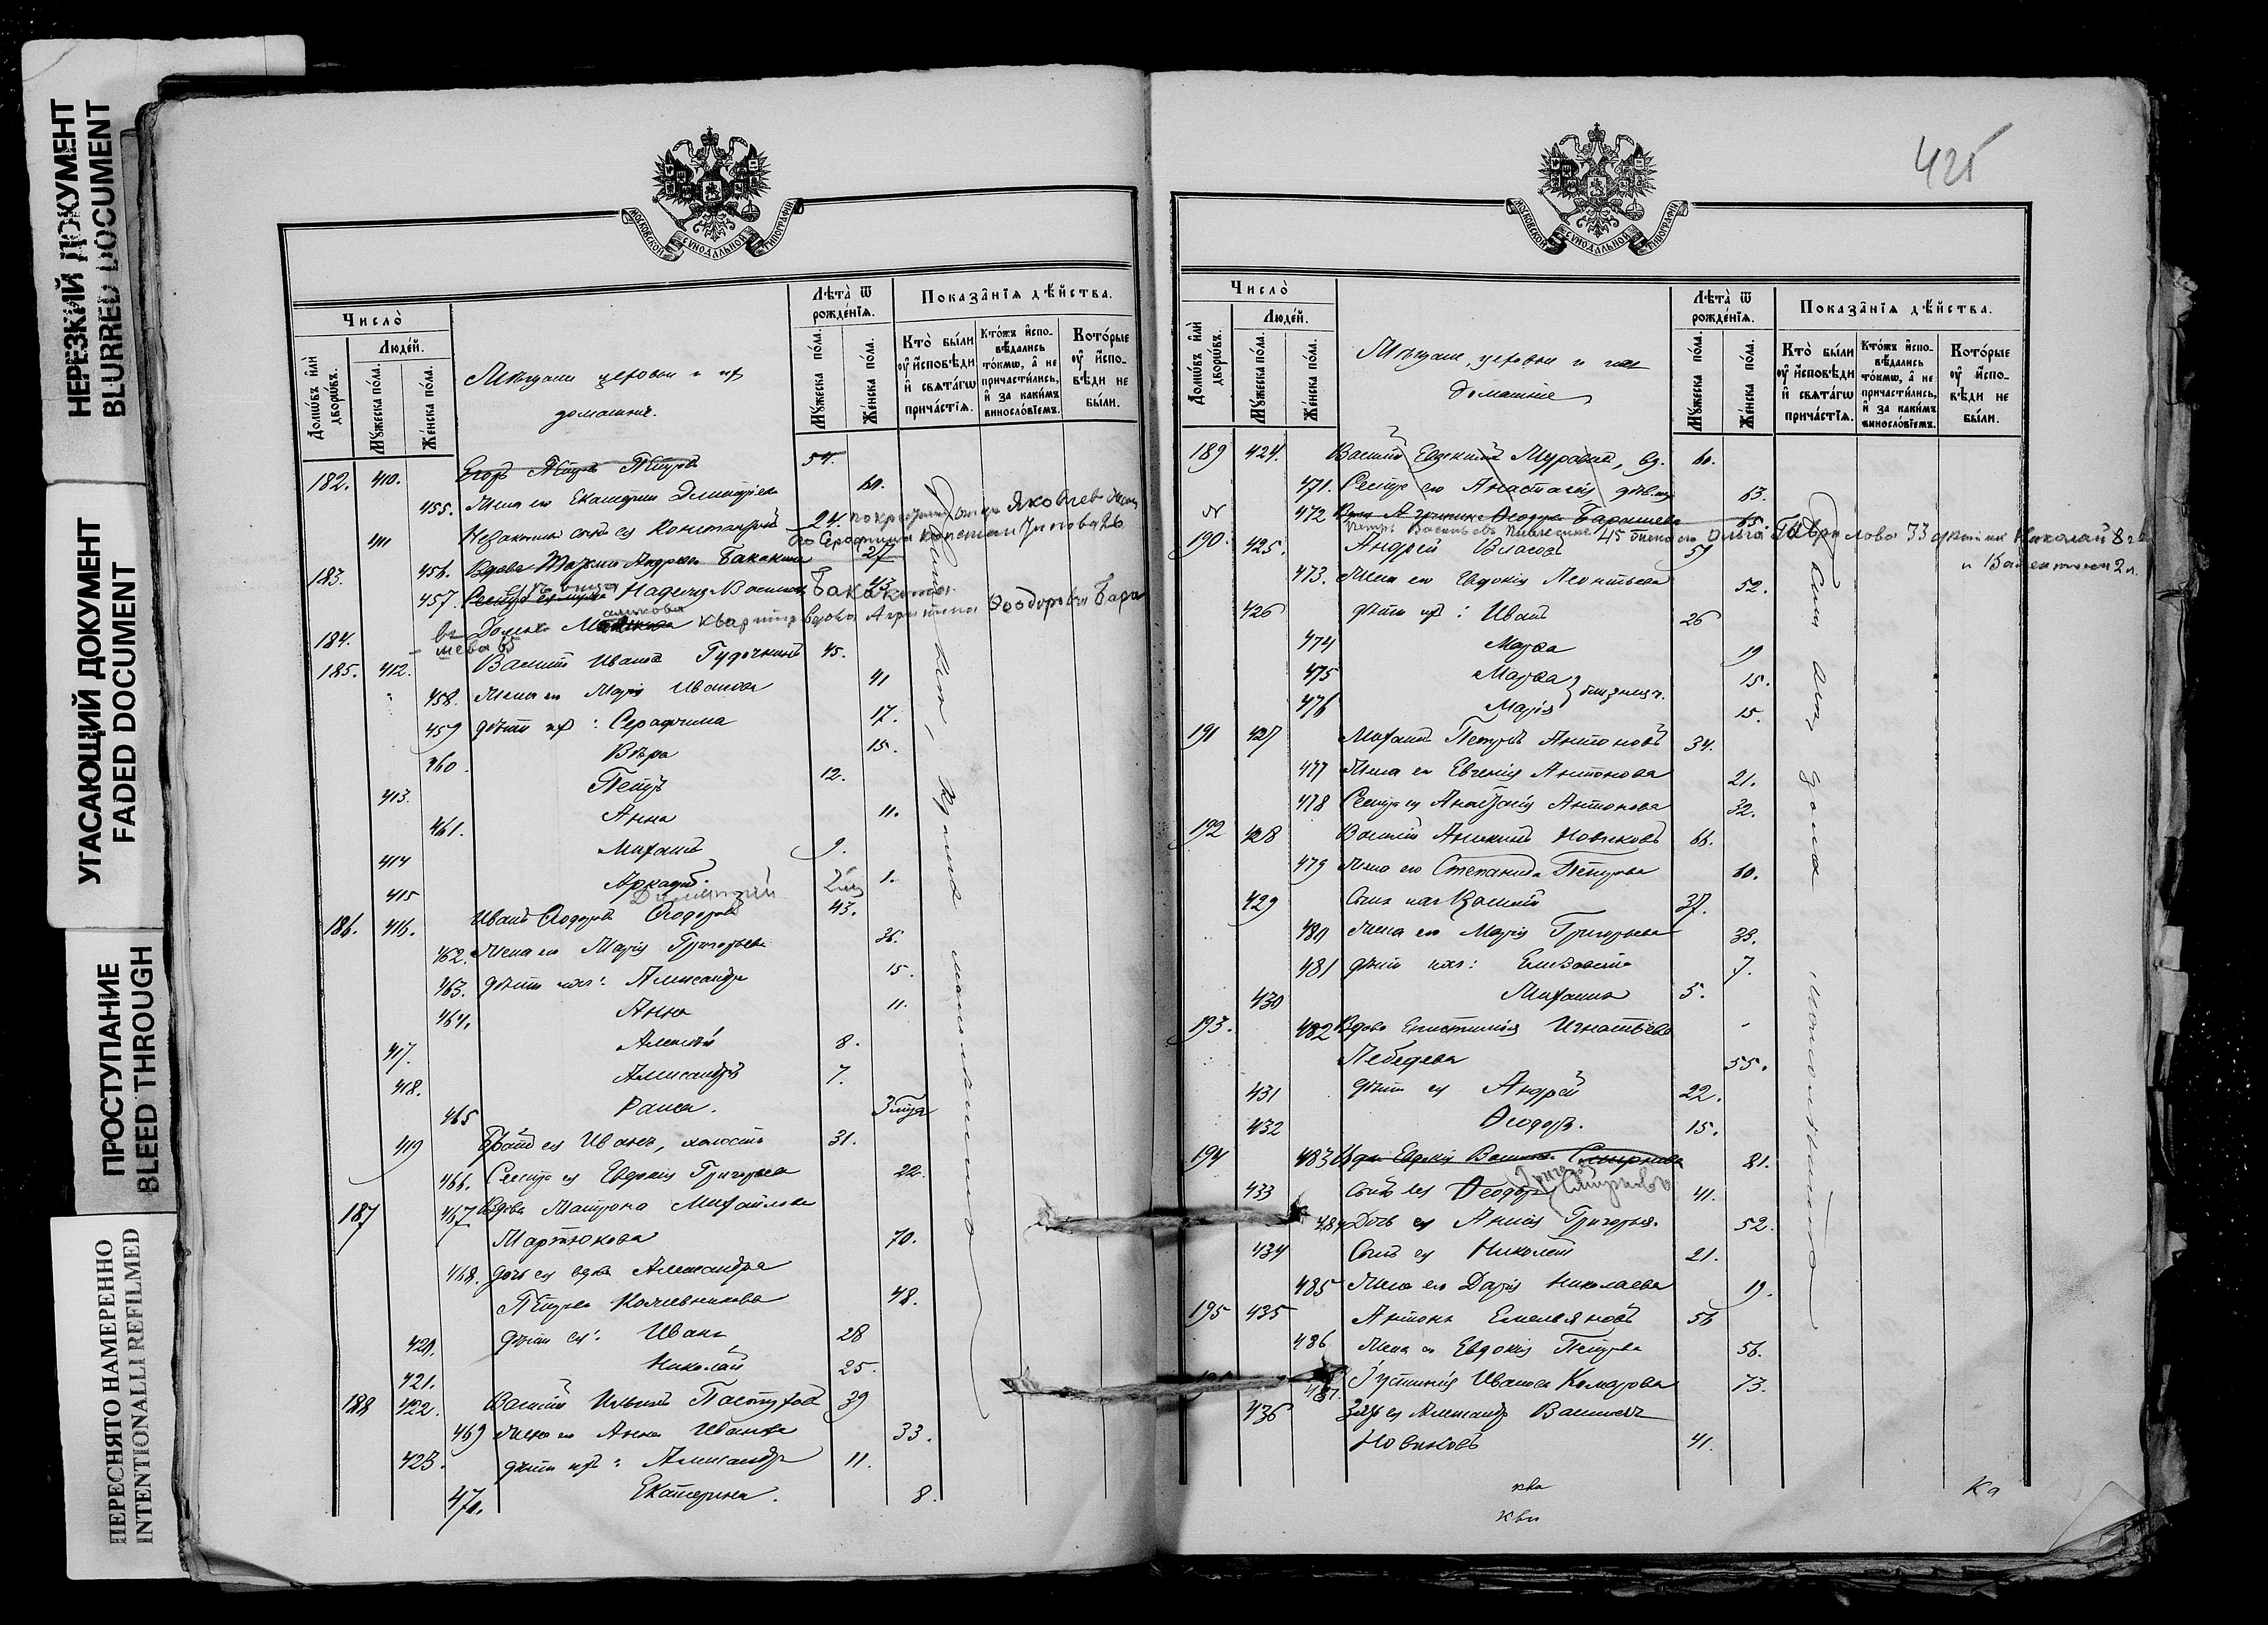 НЕРЕЗКИЙ ДОКУМЕНТ
BLURRED DOCUMENT
УГАСАЮЩИЙ ДОКУМЕНТ
FADED DOCUMENT
ПРОСТУПАНИЕ
BLEED THROUGH
ПЕРЕСНЯТО НАМЕРЕННО
INTENTIONALLI REFILMED
МОСКОВСКОЙ СѴНОДАЛЬНОЙ ТИПОГРАФІИ
Число̀
Людей.
Домѡвъ и҆лѝ дворѡвъ.
Мꙋжеска пола.
Женска пола.
Мѣщане церовые и их
домашние.
Лѣта̀ ѿ рожденїѧ.
Мꙋжеска пола.
Женска пола.
Показанїѧ дѣйства.
Кто̀ были ᲂу҆ и҆сповѣди и҆ свѧтагѡ причастїѧ.
Ктожъ и҆сповѣдались токмѡ, а҆ не причастились, и҆ за какимъ винословїемъ.
Которые ᲂу҆ и҆сповѣди не были.
182. 410. Егоръ Петровъ Петровъ 54.
455. Жена его Екатерина Дмитріева 60.
411 сынъ ея Константинъ 24.
183. 456. Вдова Андреева Бакакина 27
457. Надежда Бакакина 43
184. Домъ квартир вдова Агрипина Ѳеодоровна Бара
шева 65
185. 412. Василій Ивановъ Гудочкинъ 45.
458. Жена его Марія Иванова 41
459 дѣти их: Серафима 17.
460. Вѣра 15.
413. Петръ 12.
461. Анна 11.
414 Михаилъ 9.
415 Аркадій. 1.
Димитрій
186. 416. Иванъ Ѳеодоровъ Ѳеодоровъ 43.
462. Жена его Марія Григорьева 36.
463. дѣти их: Александра 15.
464. Анна 11.
417. Алексѣй 8.
418. Александръ 7.
465 Раиса. 3 года
419 Братъ ея Иванъ, холостъ 31.
466. Сестра ея Евдокія Григорьева 22.
187 467 Вдова Матрона Михайлова
Мартюкова 70.
468. дочь ея вдова Александра
Петрова Кожевникова 48.
420. дѣти ея: Иванъ 28
421. Николай 25.
188 422. Василій Ильинъ Пастуховъ 39
469 Жена его Анна Иванова 33.
423. дѣти ихъ: Александръ 11.
470. Екатерина. 8.
425
МОСКОВСКОЙ СѴНОДАЛЬНОЙ ТИПОГРАФІИ
Число̀
Людей.
Домѡвъ и҆лѝ дворѡвъ.
Мꙋжеска пола.
Женска пола.
Мѣщане, церовые и их
домашніе
Лѣта̀ ѿ рожденїѧ.
Мꙋжеска пола.
Женска пола.
Показанїѧ дѣйства.
Кто̀ были ᲂу҆ и҆сповѣди и҆ свѧтагѡ причастїѧ.
Ктожъ и҆сповѣдались токмѡ, а҆ не причастились, и҆ за какимъ винословїемъ.
Которые ᲂу҆ и҆сповѣди не были.
189 424. Василій вд. 60.
471. Сестра его Анастасія дѣвица 63.
472 Вдова Агрипина Ѳеодорова Барашева 65
Петръ Васильевъ 45 жена его Ольга Гаврилова 33 Николай 8 л
и Валентинъ 2 л.
190. 425. Андрей Власовъ 59
473. Жена его Евдокія Леонтьева 52.
426 дѣти их: Иванъ 26
474 Марѳа 19
475 Марѳа 15.
близнец.
476 Марія 15.
191 427 Михаилъ Петровъ Антоновъ 34.
477 Жена его Евгенія Антонова 21.
478 Сестра его Анастасія Антонова 32.
192 428 Василій Аникинъ Новиковъ 66.
479 Жена его Степанида Петрова 60.
429 Сынъ их Василій 37.
480 Жена его Марія Григорьева 33.
481 дѣти их: Елизавета 7.
430 Михаилъ 5.
193. 482 Вдова Епистимія Игнатьева
Лебедева 55.
431 дѣти ея Андрей 22.
432 Ѳеодоръ. 15.
194 483 Вдова Евдокія Смирнова 81.
433 Сынъ ея Ѳеодоръ Смирновъ 41.
484 Дочь ея Анисія Григорьева 52.
434 Сынъ ея Николай 21.
485 Жена его Дарія Николаева 19.
195 435 Антонъ Емельяновъ 56
486 Жена его Евдокія Петрова 56.
487. Іустинія Иванова Комарова 73.
436 Зять ея Александръ Васильевъ
Новиковъ 41.
ква
кви
Ка